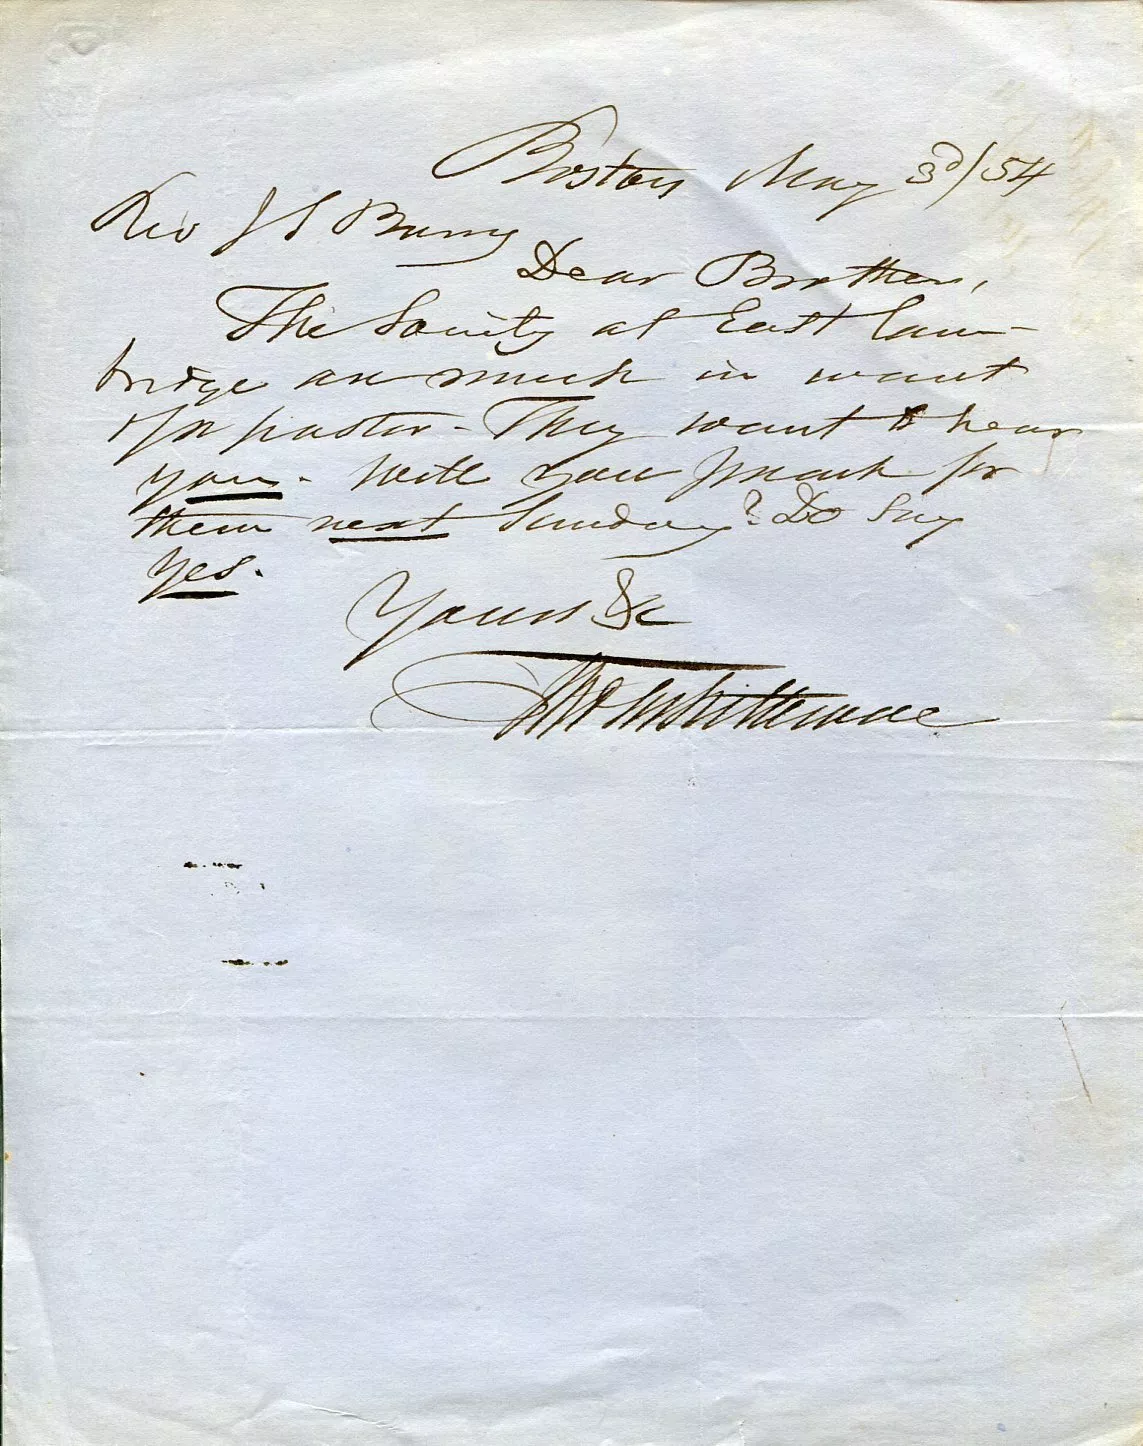 Boston May 3d/54
Rev J S Barry
Dear Brother,
The Society at East Cam-
bridge are much in want
of a pastor - They want to hear
you. Will you preach for
them next Sunday? Do say
yes.
Yours &c
Whittemore